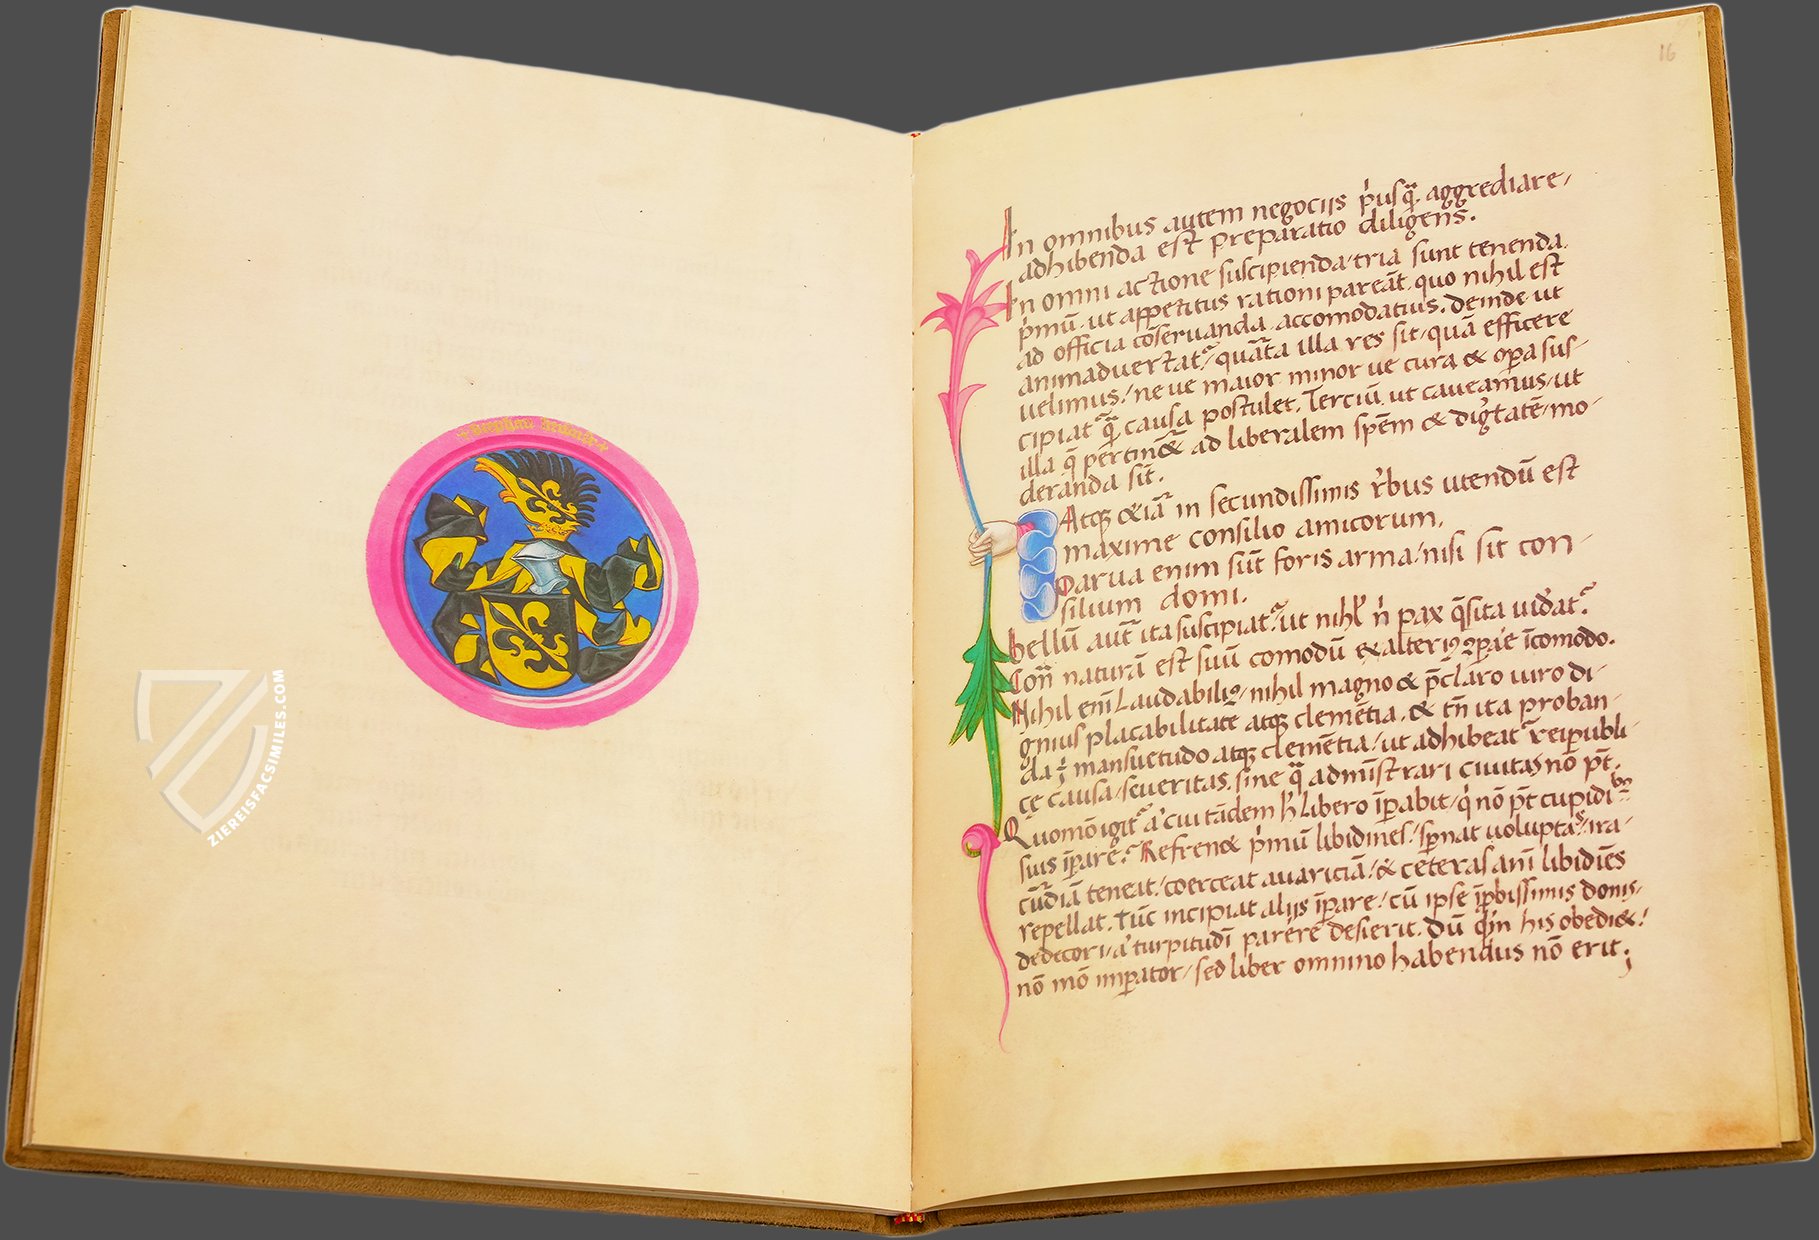 ZIEREISFACSIMILES.COM
16
In omnibus autem negocijs p̾usq̃ʒ aggrediare/
adhibenda est preparatio diligens.
In omni actione suscipienda/tria sunt tenenda.
p̾mũ. ut appetitus rationi pareãt. quo nihil est
ad officia cõseruanda accomodatius. deinde ut
animaduertatᷣ/quãta illa res sit/quã efficere
uelimus/ne ue maior minor ue cura & oꝑa sus-
cipiatᷣ q̃ʒ causa postulet. Terciũ. ut caueamus/ut
illa q̃ pertin& ad liberalem spẽm & dig̾tatẽ/mo-
deranda sit.
Atqꝫ &iã in secundissimis r̾bus utendũ est
maxime consilio amicorum.
Parua enim sũt foris arma/nisi sit con-
silium domi.
bellũ aut̃ ita suscipiatᷣ/ut nihil n̾ pax q̃sita uid̾atᷣ.
Con̾ naturã est suũ comodũ ex alteriꝰ ꝯꝑare ĩcomodo.
Nihil eni Laudabiliꝰ/nihil magno & p̃claro uiro di-
gnius placabilitate atqꝫ clemẽtia. & tñ ita proban-
da ÷ mansuetudo atqꝫ clemẽtia/ut adhibeatᷣ reipubli
cę causa/seueritas. sine q̃ adm̃istrari ciuitas nõ pt̃.
Quomõ igitᷣ a̾ cui tãdem h̾ Libero ĩꝑabit/q̾ nõ pt̃ cupidibꝰ
suis ĩꝑare? Refren& p̾mũ libidines/sp̾nat uoluptates/ira-
cũdiã teneat/coerceat auariciã/& ceteras ani libidies
repellat. tũc incipiat alijs ĩꝑare/cũ ipse ĩprobissimis donis-
dedecori/a̾ turpitudi parere desierit. dũ q̾n his obedi&/
nõ mõ imꝑator/sed liber omnino habendus nõ erit;